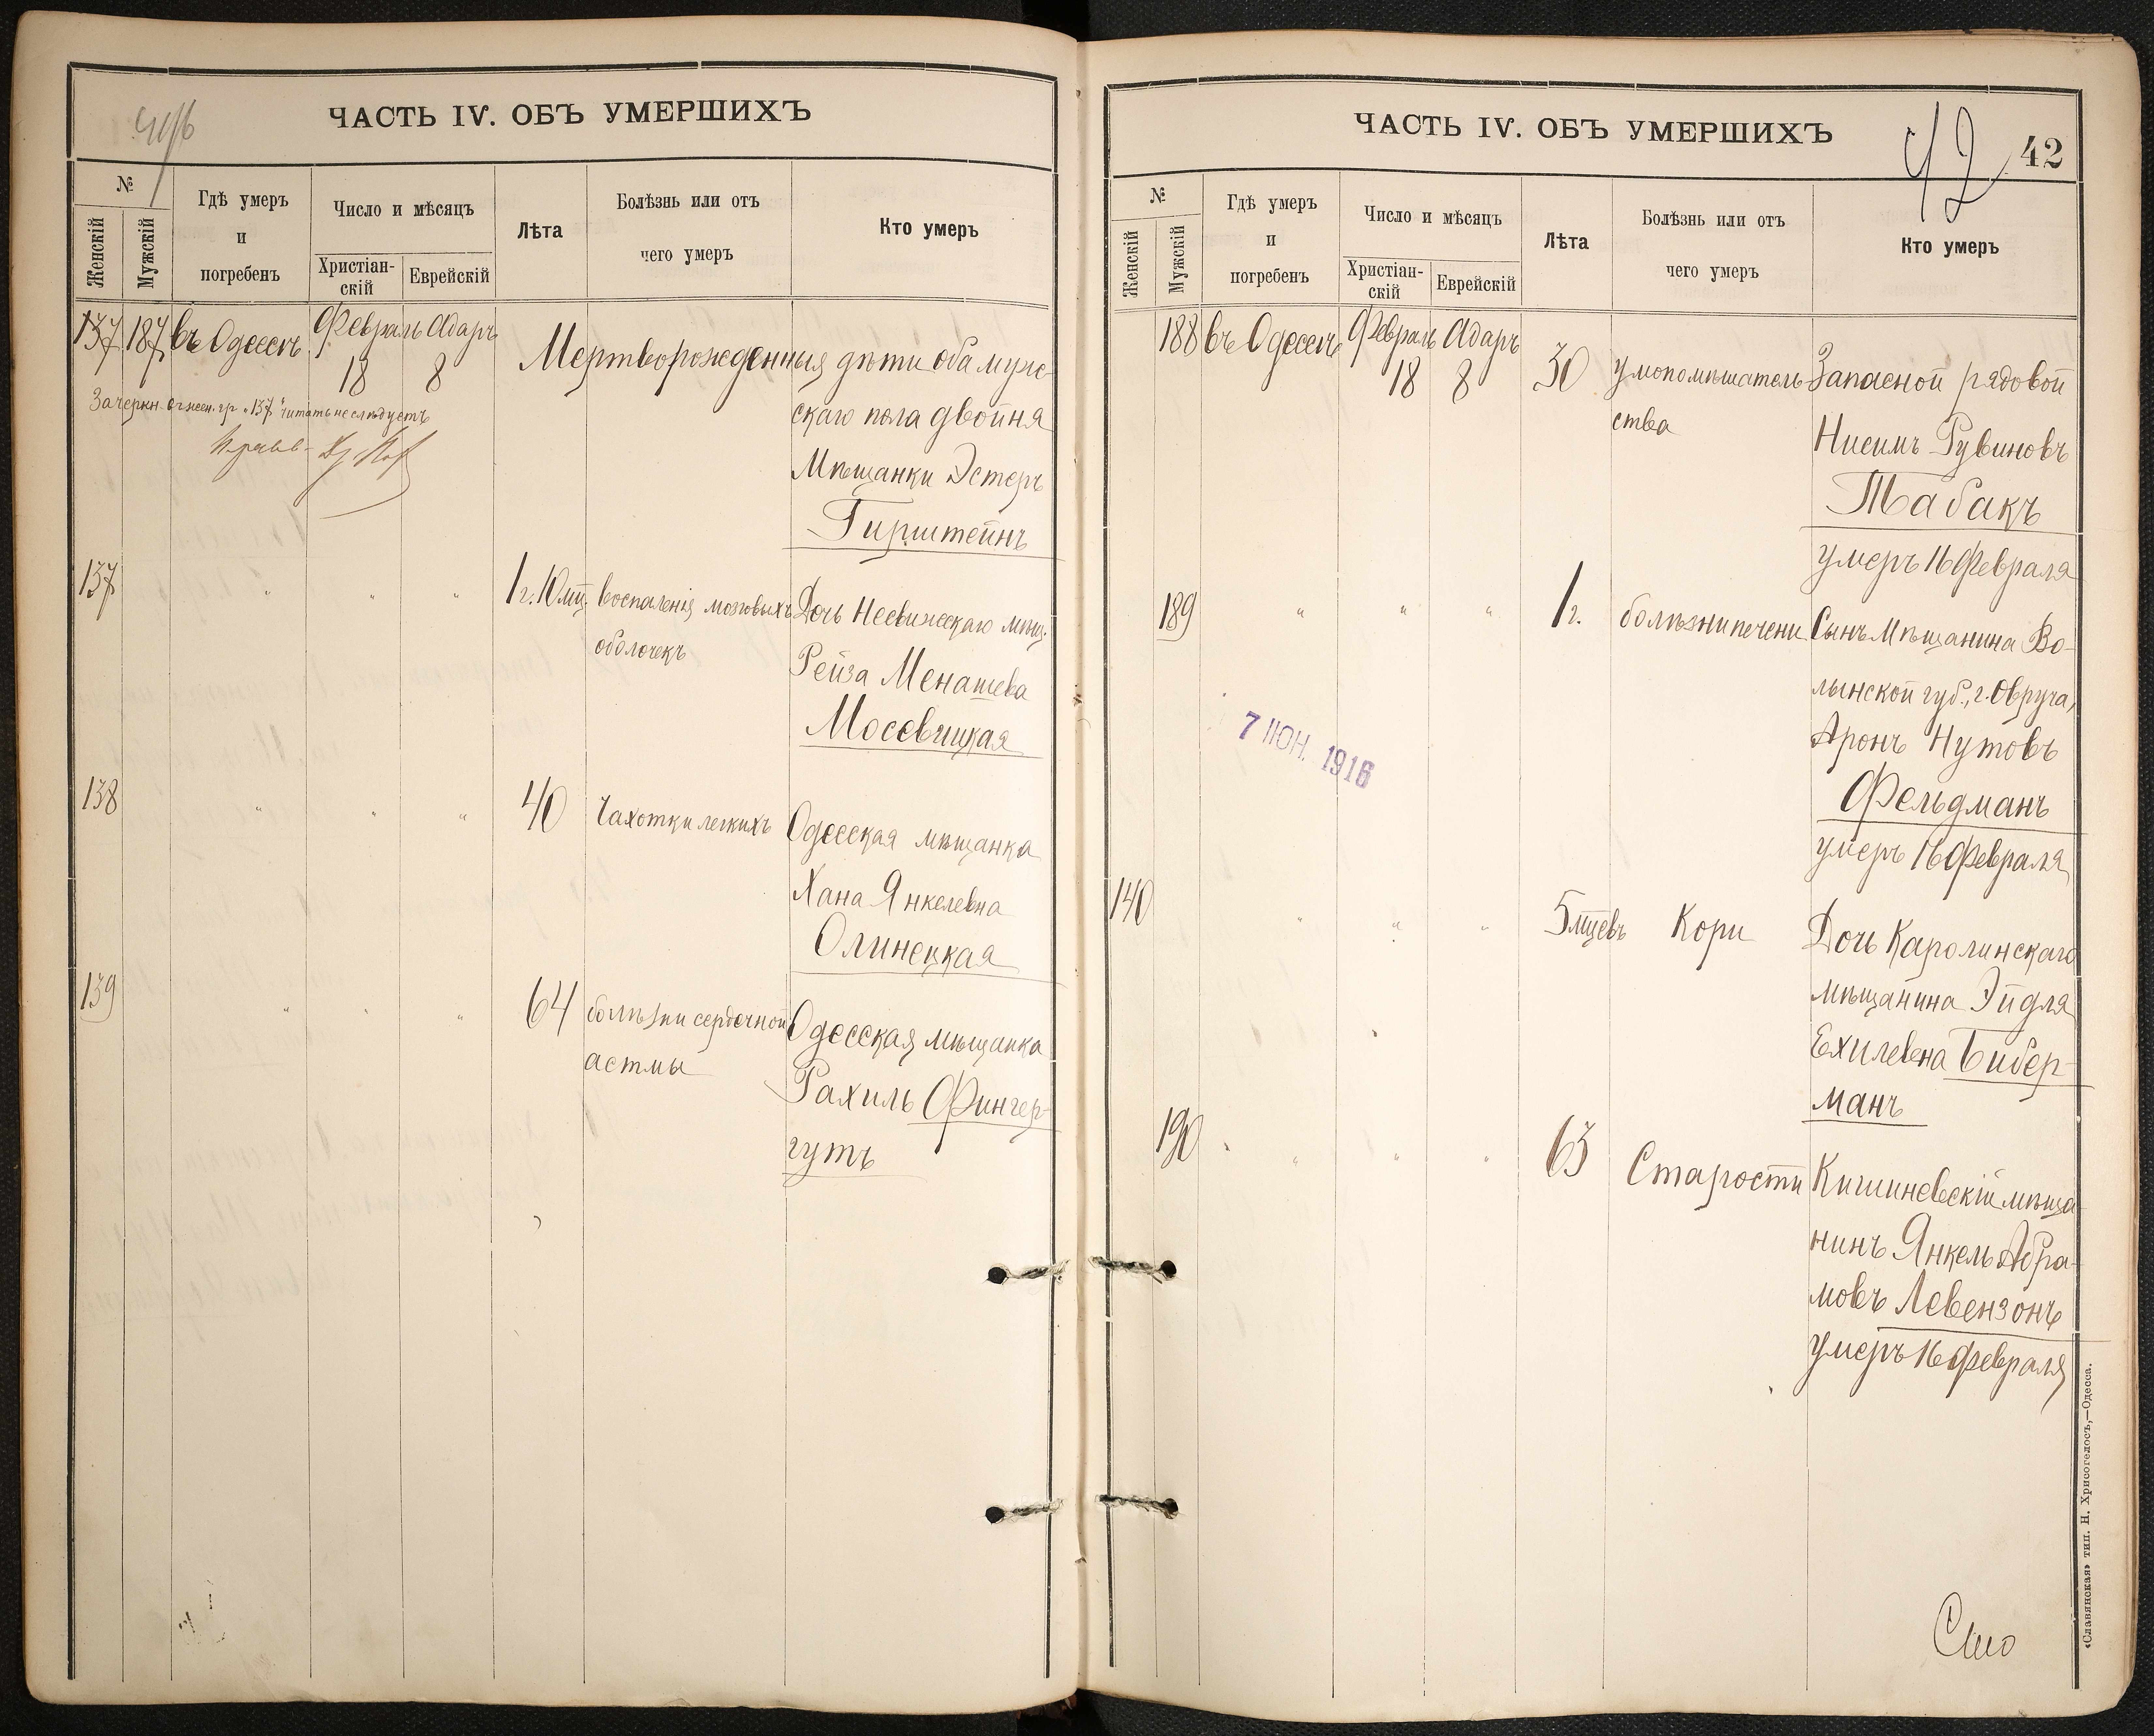 ЧАСТЬ IV. ОБЪ УМЕРШИХЪ
№
Женскій
Мужскій
Гдѣ умеръ
и
погребенъ
Число и мѣсяцъ
Христіан-
скій
Еврейскій
Лѣта
Болѣзнь или отъ
чего умеръ
Кто умеръ
137 187 въ Одессѣ Февраль Адаръ
18 8
Мертворожденныя дѣти оба муж-
скаго пола двойня
Мѣщанки Эстеръ
Гирштейнъ
137 " " " 1 г. 10 мц. воспаленія мозговыхъ Дочь Несвижскаго мѣщ.
оболочекъ
Рейза Менашева
Мосевицкая
138 " " " 40 Чахотки легкихъ Одесская мѣщанка
Хана Янкелевна
Олинецкая
139 " " " 64 болѣзни сердечной Одесская мѣщанка
астмы
Рахиль Фингер-
гутъ
ЧАСТЬ IV. ОБЪ УМЕРШИХЪ
42 42
№
Женскій
Мужскій
Гдѣ умеръ
и
погребенъ
Число и мѣсяцъ
Христіан-
скій
Еврейскій
Лѣта
Болѣзнь или отъ
чего умеръ
Кто умеръ
188 въ Одессѣ Февраль Адаръ
18 8 30 умопомѣшатель- Запасной рядовой
ства
Нисимъ Рувиновъ
Табакъ
умеръ 16 Февраля
189 " " " 1 г. болѣзни печени Сынъ Мѣщанина Во-
лынской губ., г. Овруча,
Аронъ Нутовъ
Фельдманъ
умеръ 16 Февраля
7 ІЮН. 1916
140 " " " 5 мцевъ Кори Дочь Каролинскаго
мѣщанина Эйдля
Ехилевна Бибер-
манъ
190 " " " 63 Старости Кишиневскій мѣща-
нинъ Янкель Абра-
мовъ Левензонъ
умеръ 16 Февраля
«Славянская» тип. Н. Хрисогелосъ,—Одесса.